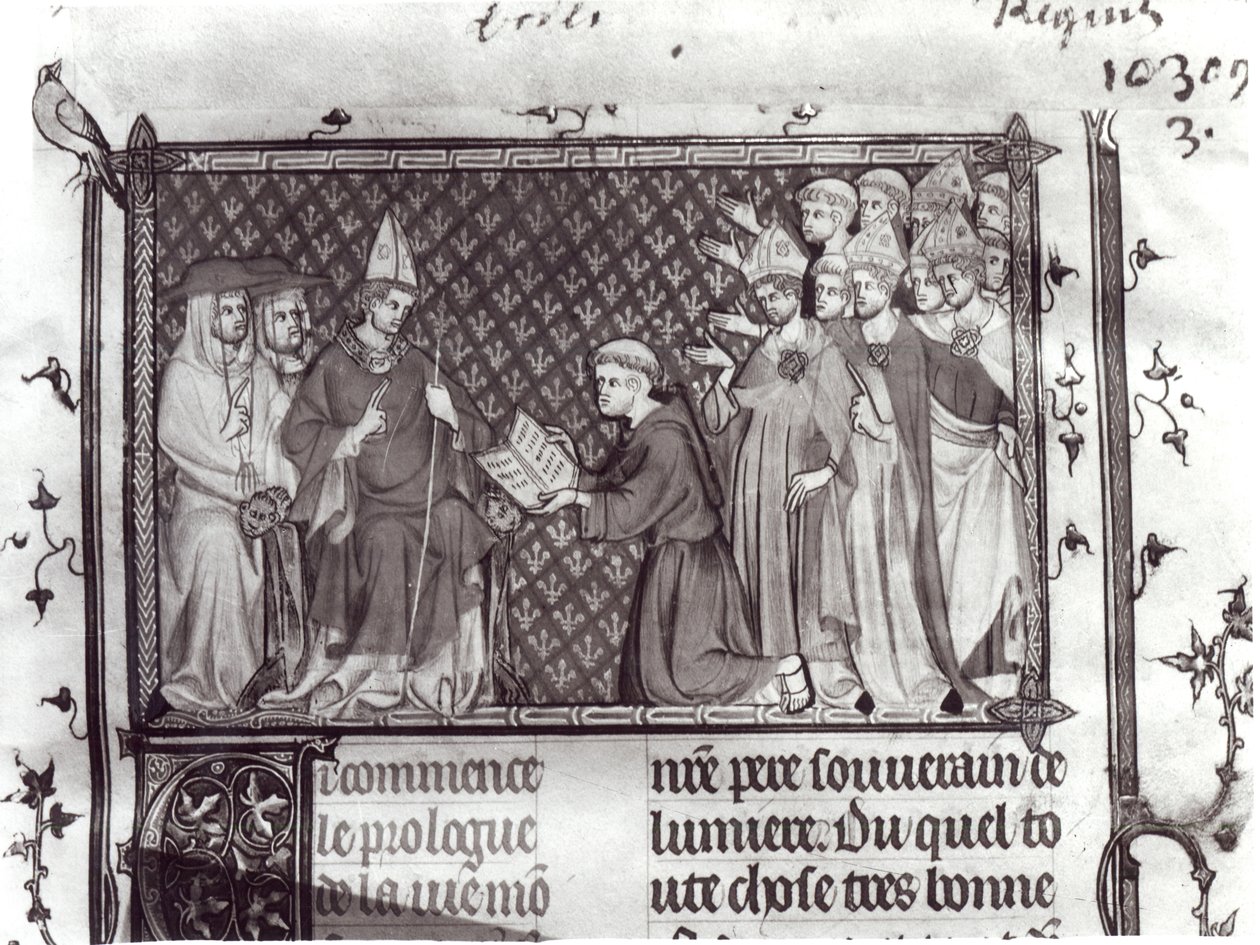 Regius
10309
3.
Ci commence
le prologue
de la uie mõ
nr̃e pere souuerain de
lumiere. Du quel to
ute chose tres bonne